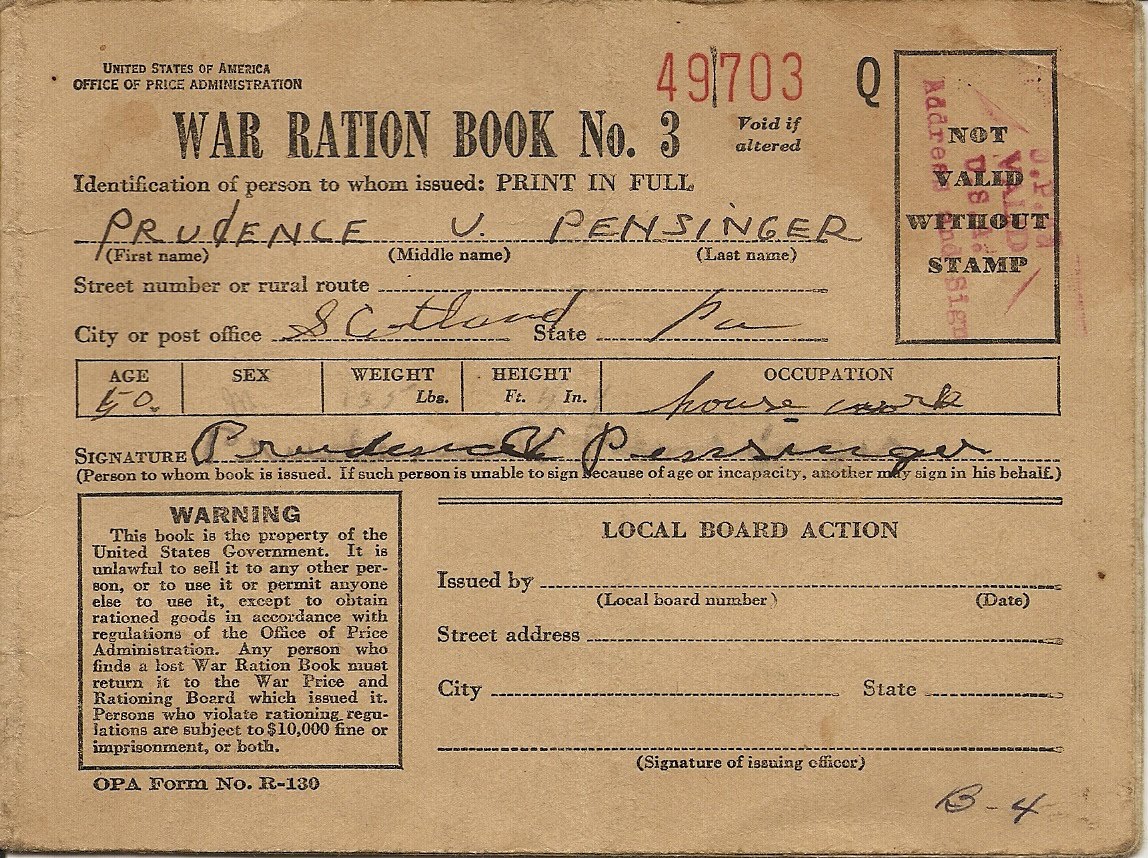 UNITED STATES OF AMERICA
OFFICE OF PRICE ADMINISTRATION
49703 Q
WAR RATION BOOK No. 3
Void if
altered
Identification of person to whom issued: PRINT IN FULL
PRUDENCE V. PENSINGER
(First name) (Middle name) (Last name)
Street number or rural route
City or post office Scotland State Pa
NOT
VALID
WITHOUT
STAMP
VALID
Address and Sign
AGE SEX WEIGHT HEIGHT OCCUPATION
50. Lbs. Ft. In. house work
SIGNATURE Prudence V Pensinger
(Person to whom book is issued. If such person is unable to sign because of age or incapacity, another may sign in his behalf.)
WARNING
This book is the property of the
United States Government. It is
unlawful to sell it to any other per-
son, or to use it or permit anyone
else to use it, except to obtain
rationed goods in accordance with
regulations of the Office of Price
Administration. Any person who
finds a lost War Ration Book must
return it to the War Price and
Rationing Board which issued it.
Persons who violate rationing regu-
lations are subject to $10,000 fine or
imprisonment, or both.
OPA Form No. R-130
LOCAL BOARD ACTION
Issued by
(Local board number) (Date)
Street address
City State
(Signature of issuing officer)
B-4